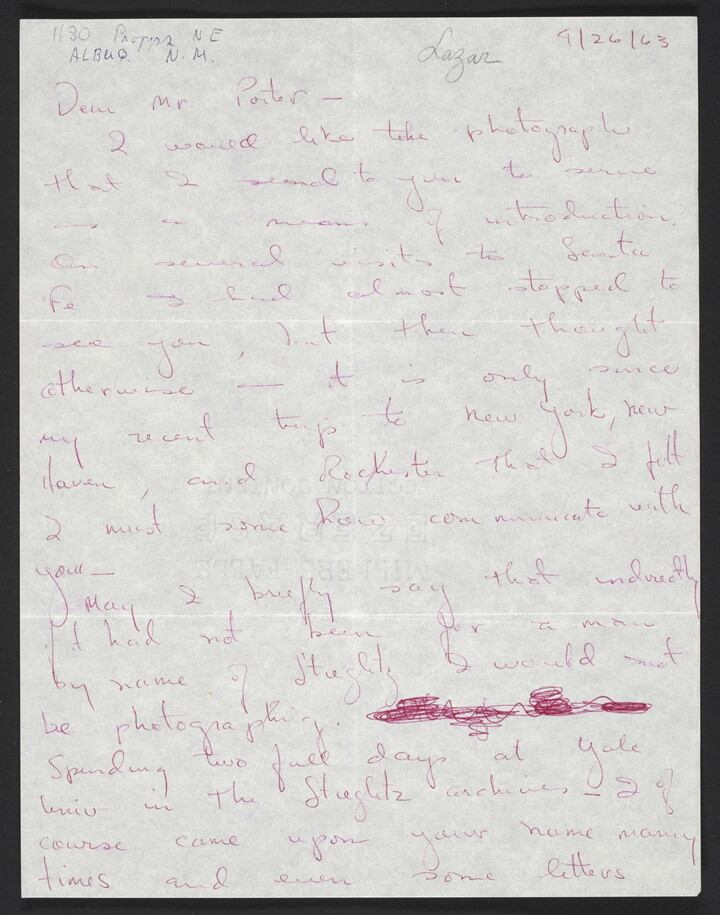 1130 Propps NE
ALBUQ. N.M.
Lazar
9/26/63
Dear Mr. Porter —
I would like the photograph
that I send to you to serve
as a means of introduction.
On several visits to Santa
Fe I had almost stopped to
see you, but then thought
otherwise — it is only since
my recent trips to New York, New
Haven, and Rochester that I felt
I must some how communicate with
you —
May I briefly say that indirectly
if it had not been for a man
by name of Stieglitz I would not
be photographing.
Spending two full days at Yale
Univ in the Stieglitz archives — I of
course came upon your name many
times and even some letters
COTTON CONTENT
EZERASE
MILLERS FALLS